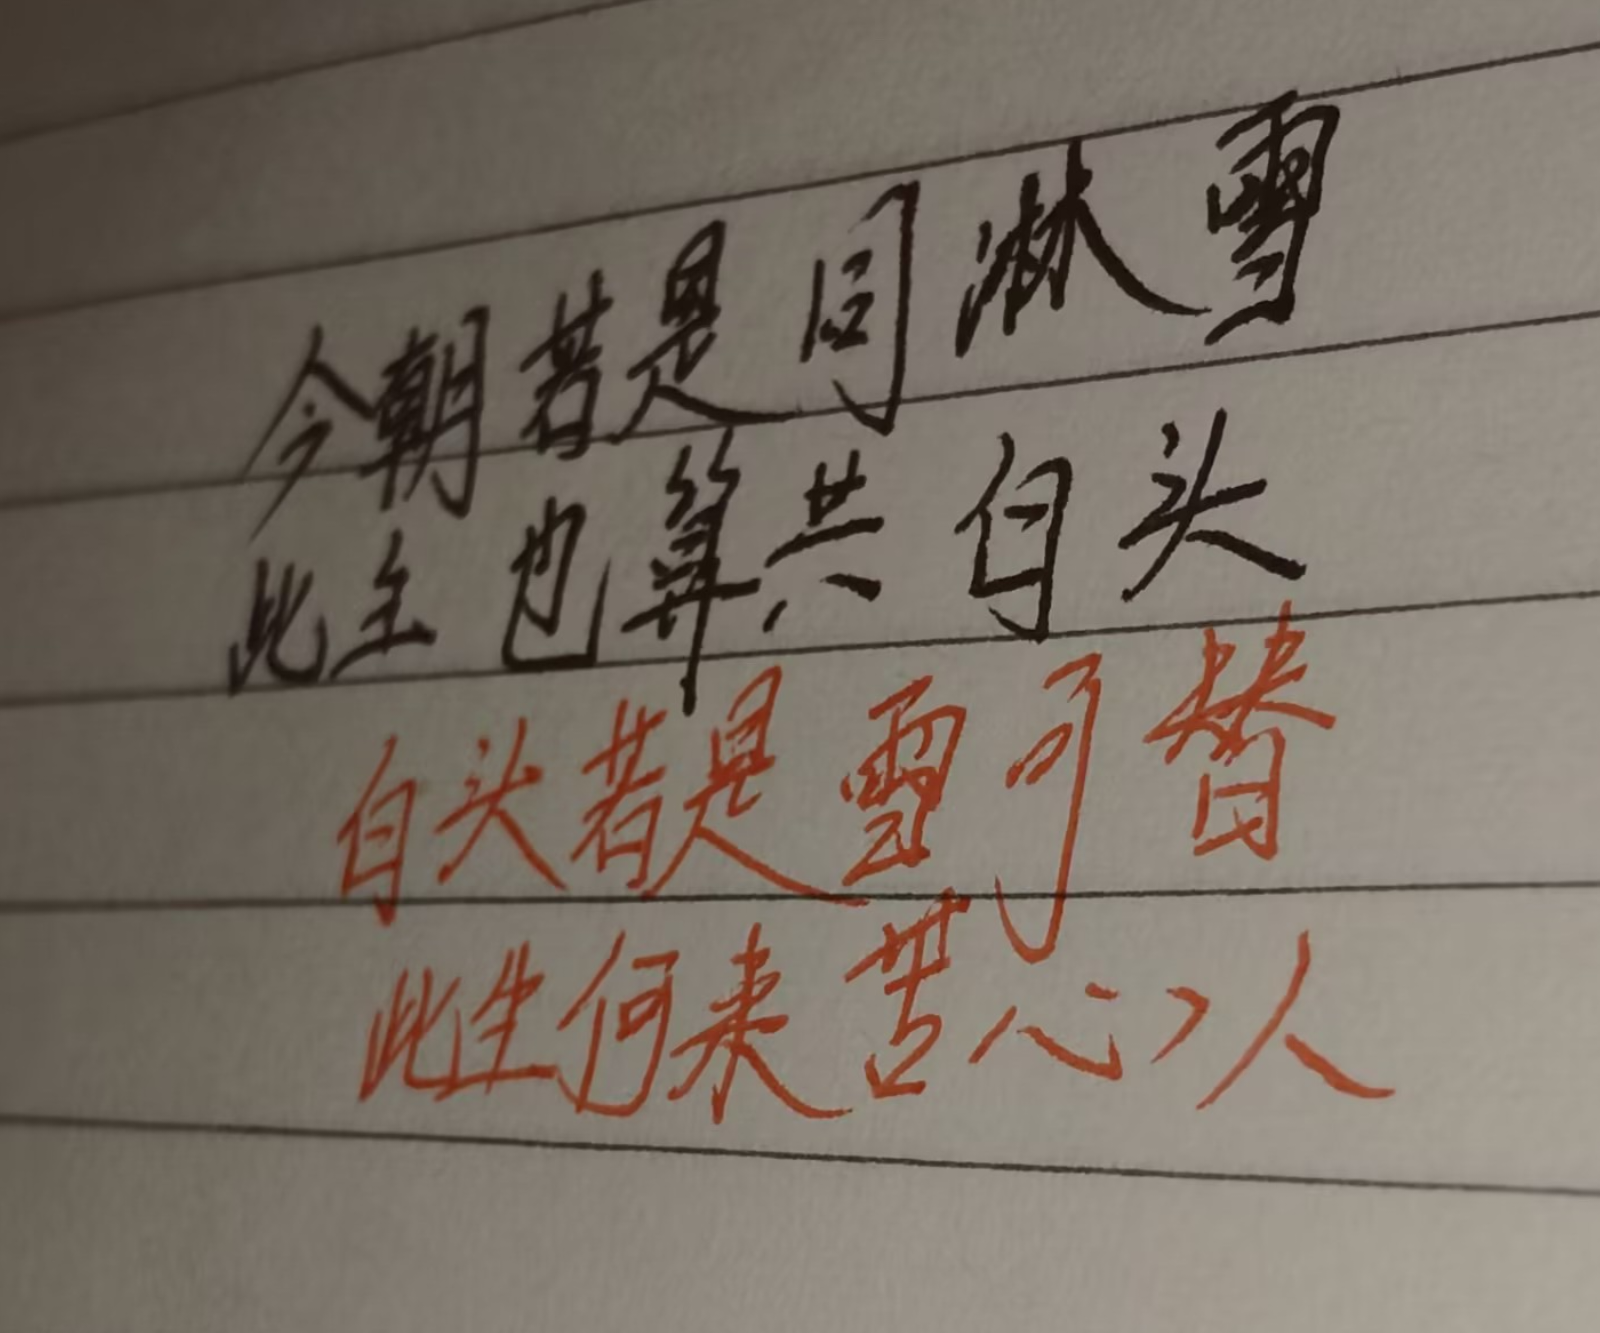 今朝若是同淋雪
此生也算共白头
白头若是雪可替
此生何来苦心人